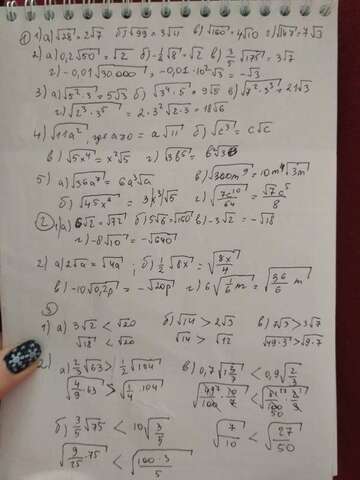 ① 1) а) √28 = 2√7 б) √99 = 3√11 в) √160 = 4√10 г) √147 = 7√3
2) а) 0,2√50 = √2 б) -½√8 = √2 в) 3/5 √175 = 3√7
г) -0,01√30.000 = -0,01·10²√3 = -√3
3) а) √5²·3 = 5√3 б) √3⁴·5 = 9√5 в) √7²·3³ = 21√3
г) √2³·3⁵ = 2·3²√2·3 = 18√6
4) √11a², где a≥0 = a√11 б) √c³ = c√c
в) √5x⁴ = x²√5 г) √3b⁵
5) а) √36a⁷ = 6a³√a в) √300m⁹ = 10m⁴√3m
б) √45x⁷ = 3x³√5 г) √7c¹⁰/64 = √7c⁵/8
② 1) а) 6√2 = √72 б) 5√6 = √150 в) -3√2 = -√18
г) -8√10 = -√640
2) а) 2√a = √4a б) ½√8x = √8x/4
в) -10√0,2p = -√20p г) 6√1/6 m = √36/6 m
3
1) а) 3√2 < √20 б) √14 > 2√3 в) 7√3 > 3√7
√18 < √20 √14 > √12 √49·3 > √9·7
2) а) 2/3√63 > ½√104 в) 0,7√1 3/7 < 0,9√2/3
√4/9·63 > √¼·104
б) 3/5√75 < 10√3/5 √7/10 < √27/50
√9/25·75 < √100·3/5